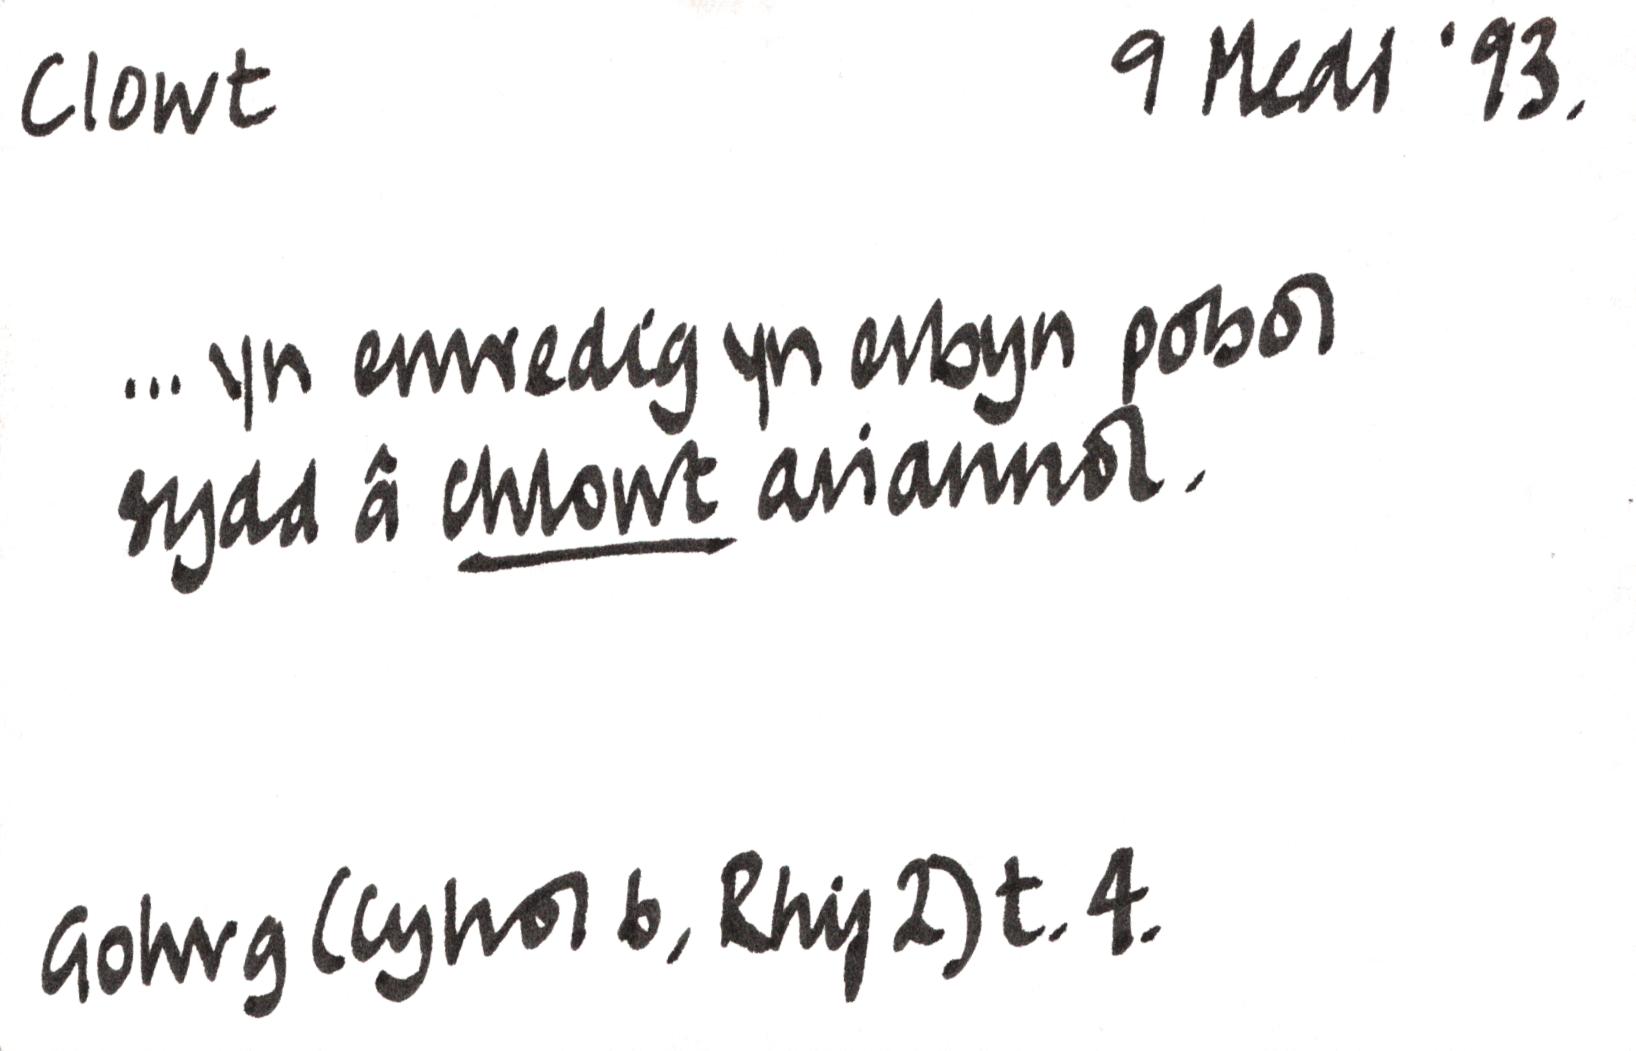 Clowt
9 Medi '93.
... yn enwedig yn erbyn pobol
sydd â chlowt ariannol.
Golwg (Cyfrol 6, Rhif 2) t. 4.